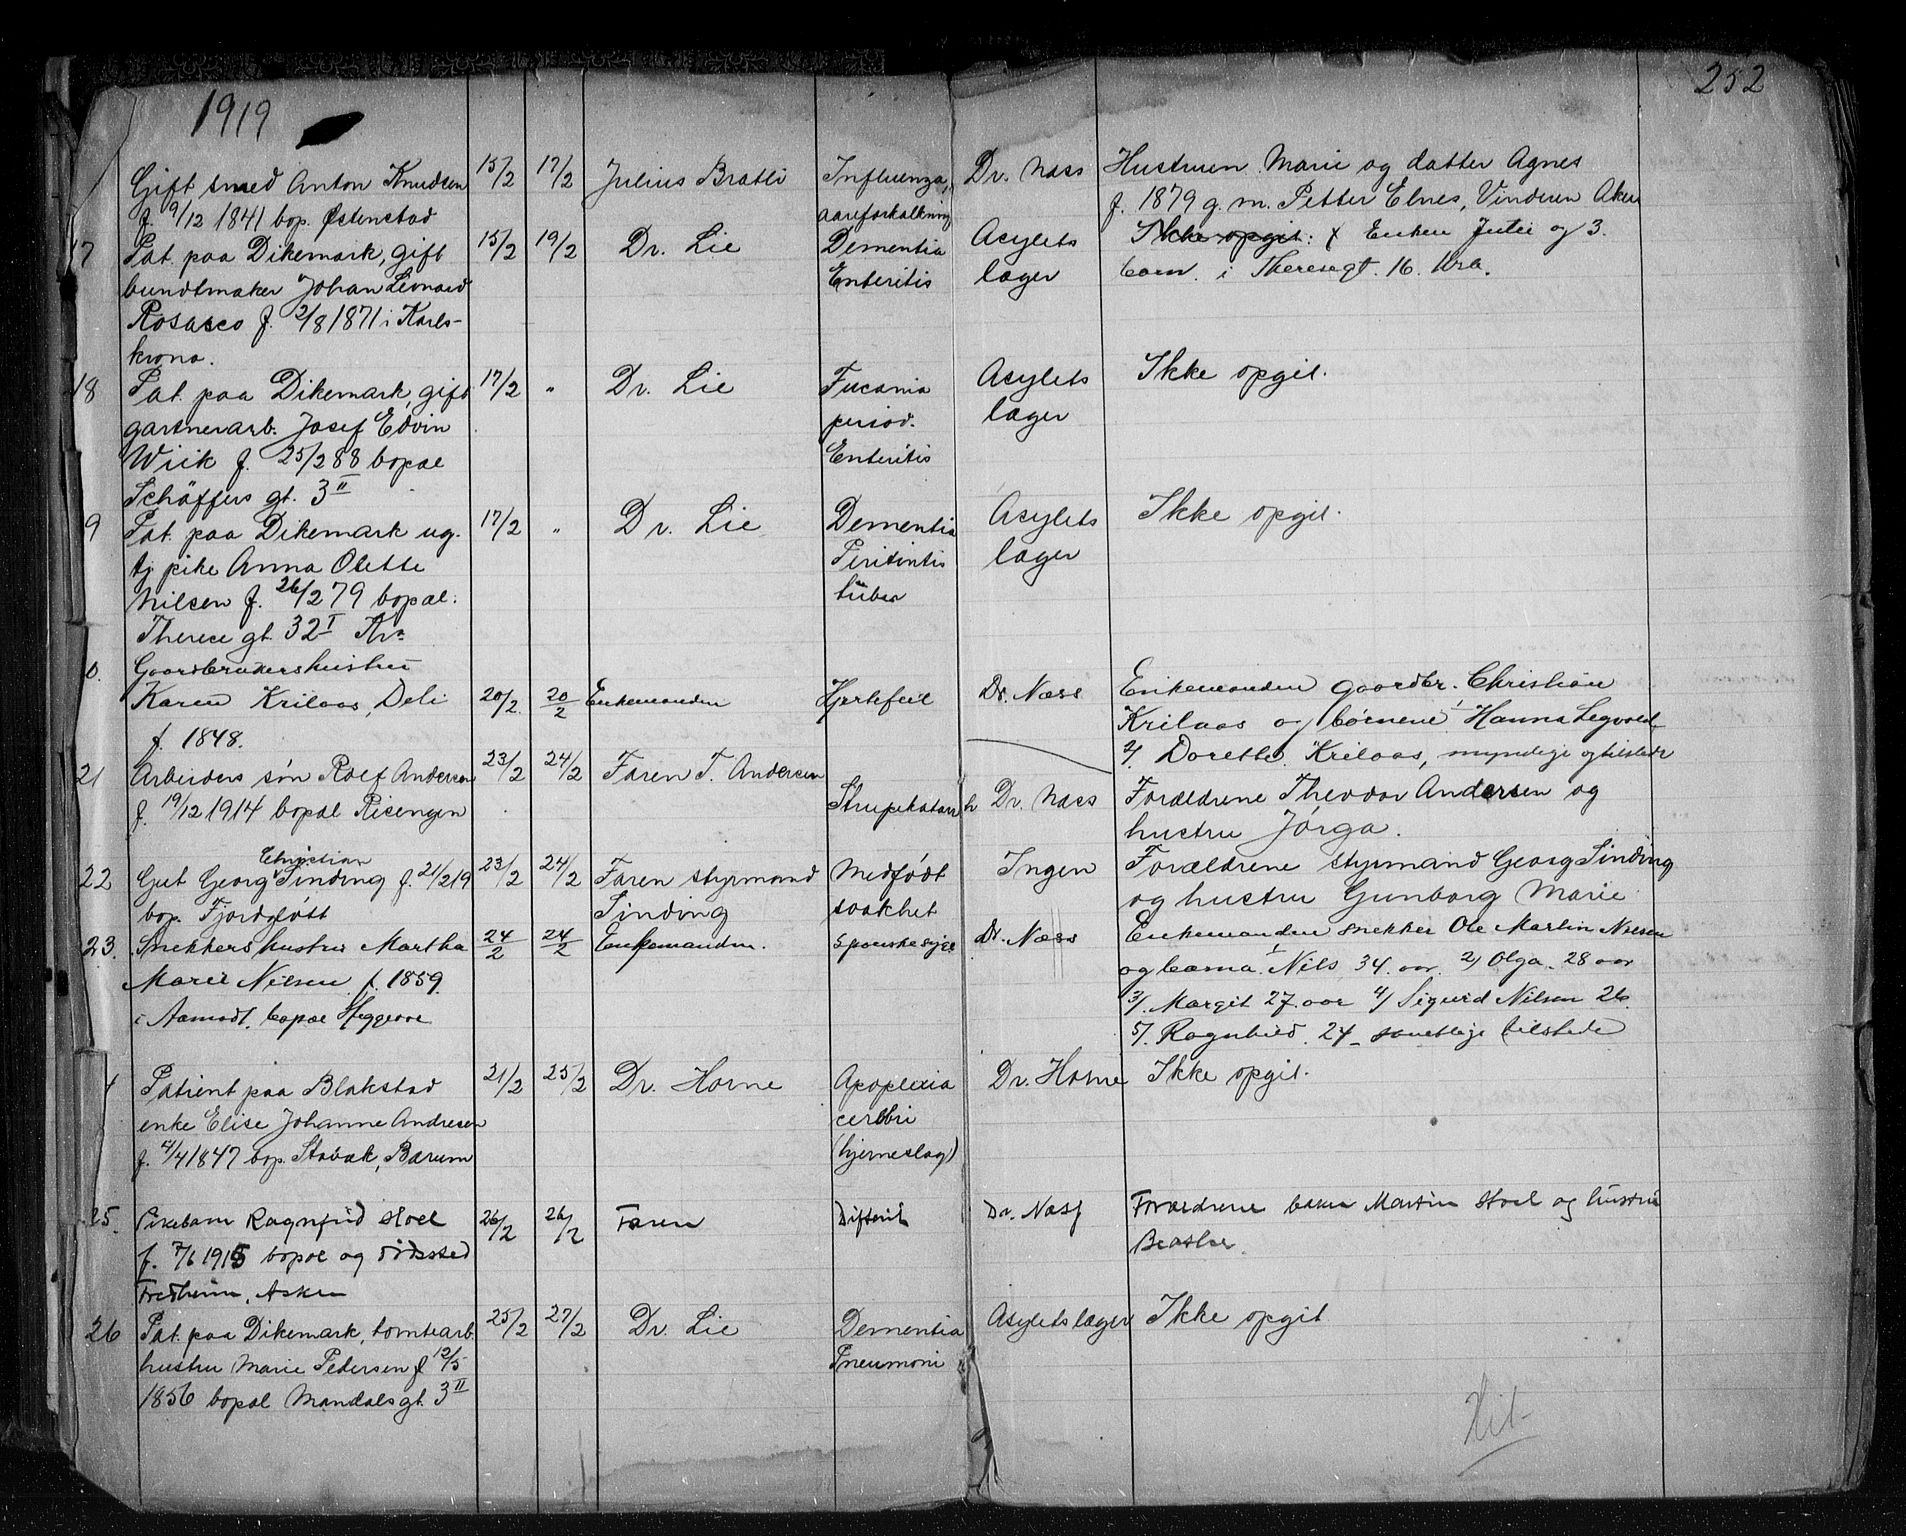 1919
252
Gift smed Anton Knudsen 15/2 17/2 Julius Bratli Influenza, Dr. Næss Hustruen Marie og datter Agnes
f. 9/12 1841 bop. Østenstad aareforkalkning f. 1879 g. m. Petter Elnes, Vinderen Aker
17 Pat. paa Dikemark, gift 15/2 19/2 Dr. Lie Dementia Asylets Ikke opgit: x Enken Julie og 3
buntmaker Johan Leonard Enteritis læger barn i Theresegt. 16. Kra.
Rosasco f. 2/8 1871 i Karls-
krona.
18 Pat. paa Dikemark, gift 17/2 " Dr. Lie Asylets Ikke opgit.
gartnerarb. Josef Edvin period. læger
Wiik f. 25/2 88 bopæl Enteritis
Schäffers gt. 3 II
9 Pat. paa Dikemark ug. 17/2 " Dr. Lie Dementia Asylets Ikke opgit.
tj pike Anna Olette læger
Nilsen f. 26/2 79 bopæl. tuber
Therese gt. 32 I Kra
0. Gaardbrukershustru
Karen Krilaas, Deli 20/2 20/2 Enkemanden Hjertefeil Dr. Næss Enkemanden gaardbr. Christian
f. 1848. Krilaas og børnene 1/ Hanna Legvold
2/. Dorette Krilaas, myndige og tilstede
21 Arbeiders søn Rolf Andersen 23/2 24/2 Faren T. Andersen
f. 19/12 1914 bopæl Risengen Strupekatarrh Dr. Næss Forældrene Theodor Andersen og
hustru Jørga.
22 Gut Georg Christian Sinding f. 21/2 19 23/2 24/2 Faren styrmand Medfødt Ingen Forældrene styrmand Georg Sinding
bop. Fjordgløtt Sinding svakhet og hustru Gunborg Marie
23. Snekkers hustru Martha 24/2 24/2 Enkemanden. Spanskesyge Dr. Næss Enkemanden snekker Ole Martin Nilsen
Marie Nilsen f. 1859 og barna 1/ Nils 34. aar. 2/ Olga. 28 aar
i Aamodt, bopæl Heggerne 3/. Margit 27. aar 4/ Sigurd Nilsen 26
5/. Ragnhild. 24 - samtlige tilstede
4 Patient paa Blakstad 21/2 25/2 Dr. Horne Apoplexia Dr. Horne Ikke opgit.
enke Elise Johanne Andresen cerebri
f. 7/4 1847 bop. Stabæk, Bærum (hjerneslag)
25. Pikebarn Ragnfrid Stoel 26/2 26/2 Faren Difterit Dr. Næss Forældrene baker Martin Stoel og hustru
f. 7/6 1915 bopæl og dødssted
Fredheim, Asker
26 Pat. paa Dikemark, tomtearb. 25/2 27/2 Dr. Lie Dementia Asylets læger Ikke opgit
hustru Marie Pedersen f 12/5 Pneumoni
1856 bopæl Mandalsgt. 3 II
Hit